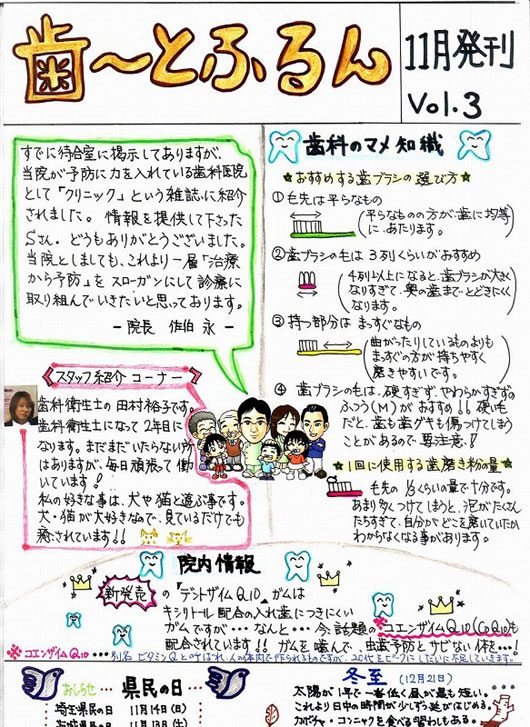 歯〜とふるん
11月発刊
Vol.3
すでに待合室に掲示してありますが、
当院が予防に力を入れている歯科医院
として「クリニック」という雑誌に紹介
されました。情報を提供して下さった
Sさん。どうもありがとうございました。
当院としましても、これより一層「治療
から予防」をスローガンにして診療に
取り組んでいきたいと思っております。
－院長 佐伯 永－
スタッフ紹介コーナー
歯科衛生士の田村裕子です。
歯科衛生士になって2年目に
なります。まだまだいたらない所
はありますが、毎日頑張って働
いています!
私の好きな事は、犬や猫と遊ぶ事です。
犬・猫が大好きなので、見ているだけでも
癒されています!!
歯科のマメ知識
★おすすめする歯ブラシの選び方★
①毛先は平らなもの
(平らなものの方が歯に均等
に、あたります。)
②歯ブラシの毛は3列くらいがおすすめ
(4列以上になると、歯ブラシが大きく
なりすぎて、奥の歯までとどきにくく
なります。)
③持つ部分はまっすぐなもの
(曲がったりしているものよりも
まっすぐの方が持ちやすく
磨きやすいです。)
④歯ブラシの毛は、硬すぎず、やわらかすぎずの
ふつう(M)がおすすめ!!硬い毛
だと、歯も歯グキも傷つけてしまう
ことがあるので要注意!
★1回に使用する歯磨き粉の量★
毛先の1/3くらいの量で十分です。
あまり多くつけてしまうと、泡がたくさん
たちすぎて、自分がどこを磨いていたか
わからなくなる事があります。
院内情報
新発売の「デントザイムQ10」ガムは
キシリトール配合の入れ歯につきにくい
ガムですが…なんと…今、話題の※コエンザイムQ10(CoQ10)も
配合されています!!ガムを噛んで、虫歯予防とサビない体を…!
※コエンザイムQ10…別名ビタミンQとよばれ、人の体内で作られるものですが、20代をピークにしだいに不足していきます。
おしらせ…県民の日
埼玉県民の日 11月14日(日)
茨城県民の日 11月13日(土)
冬至(12月21日)
太陽が1年で一番低く昼が最も短い。
これより日中の時間が少しずつ延びはじめる。